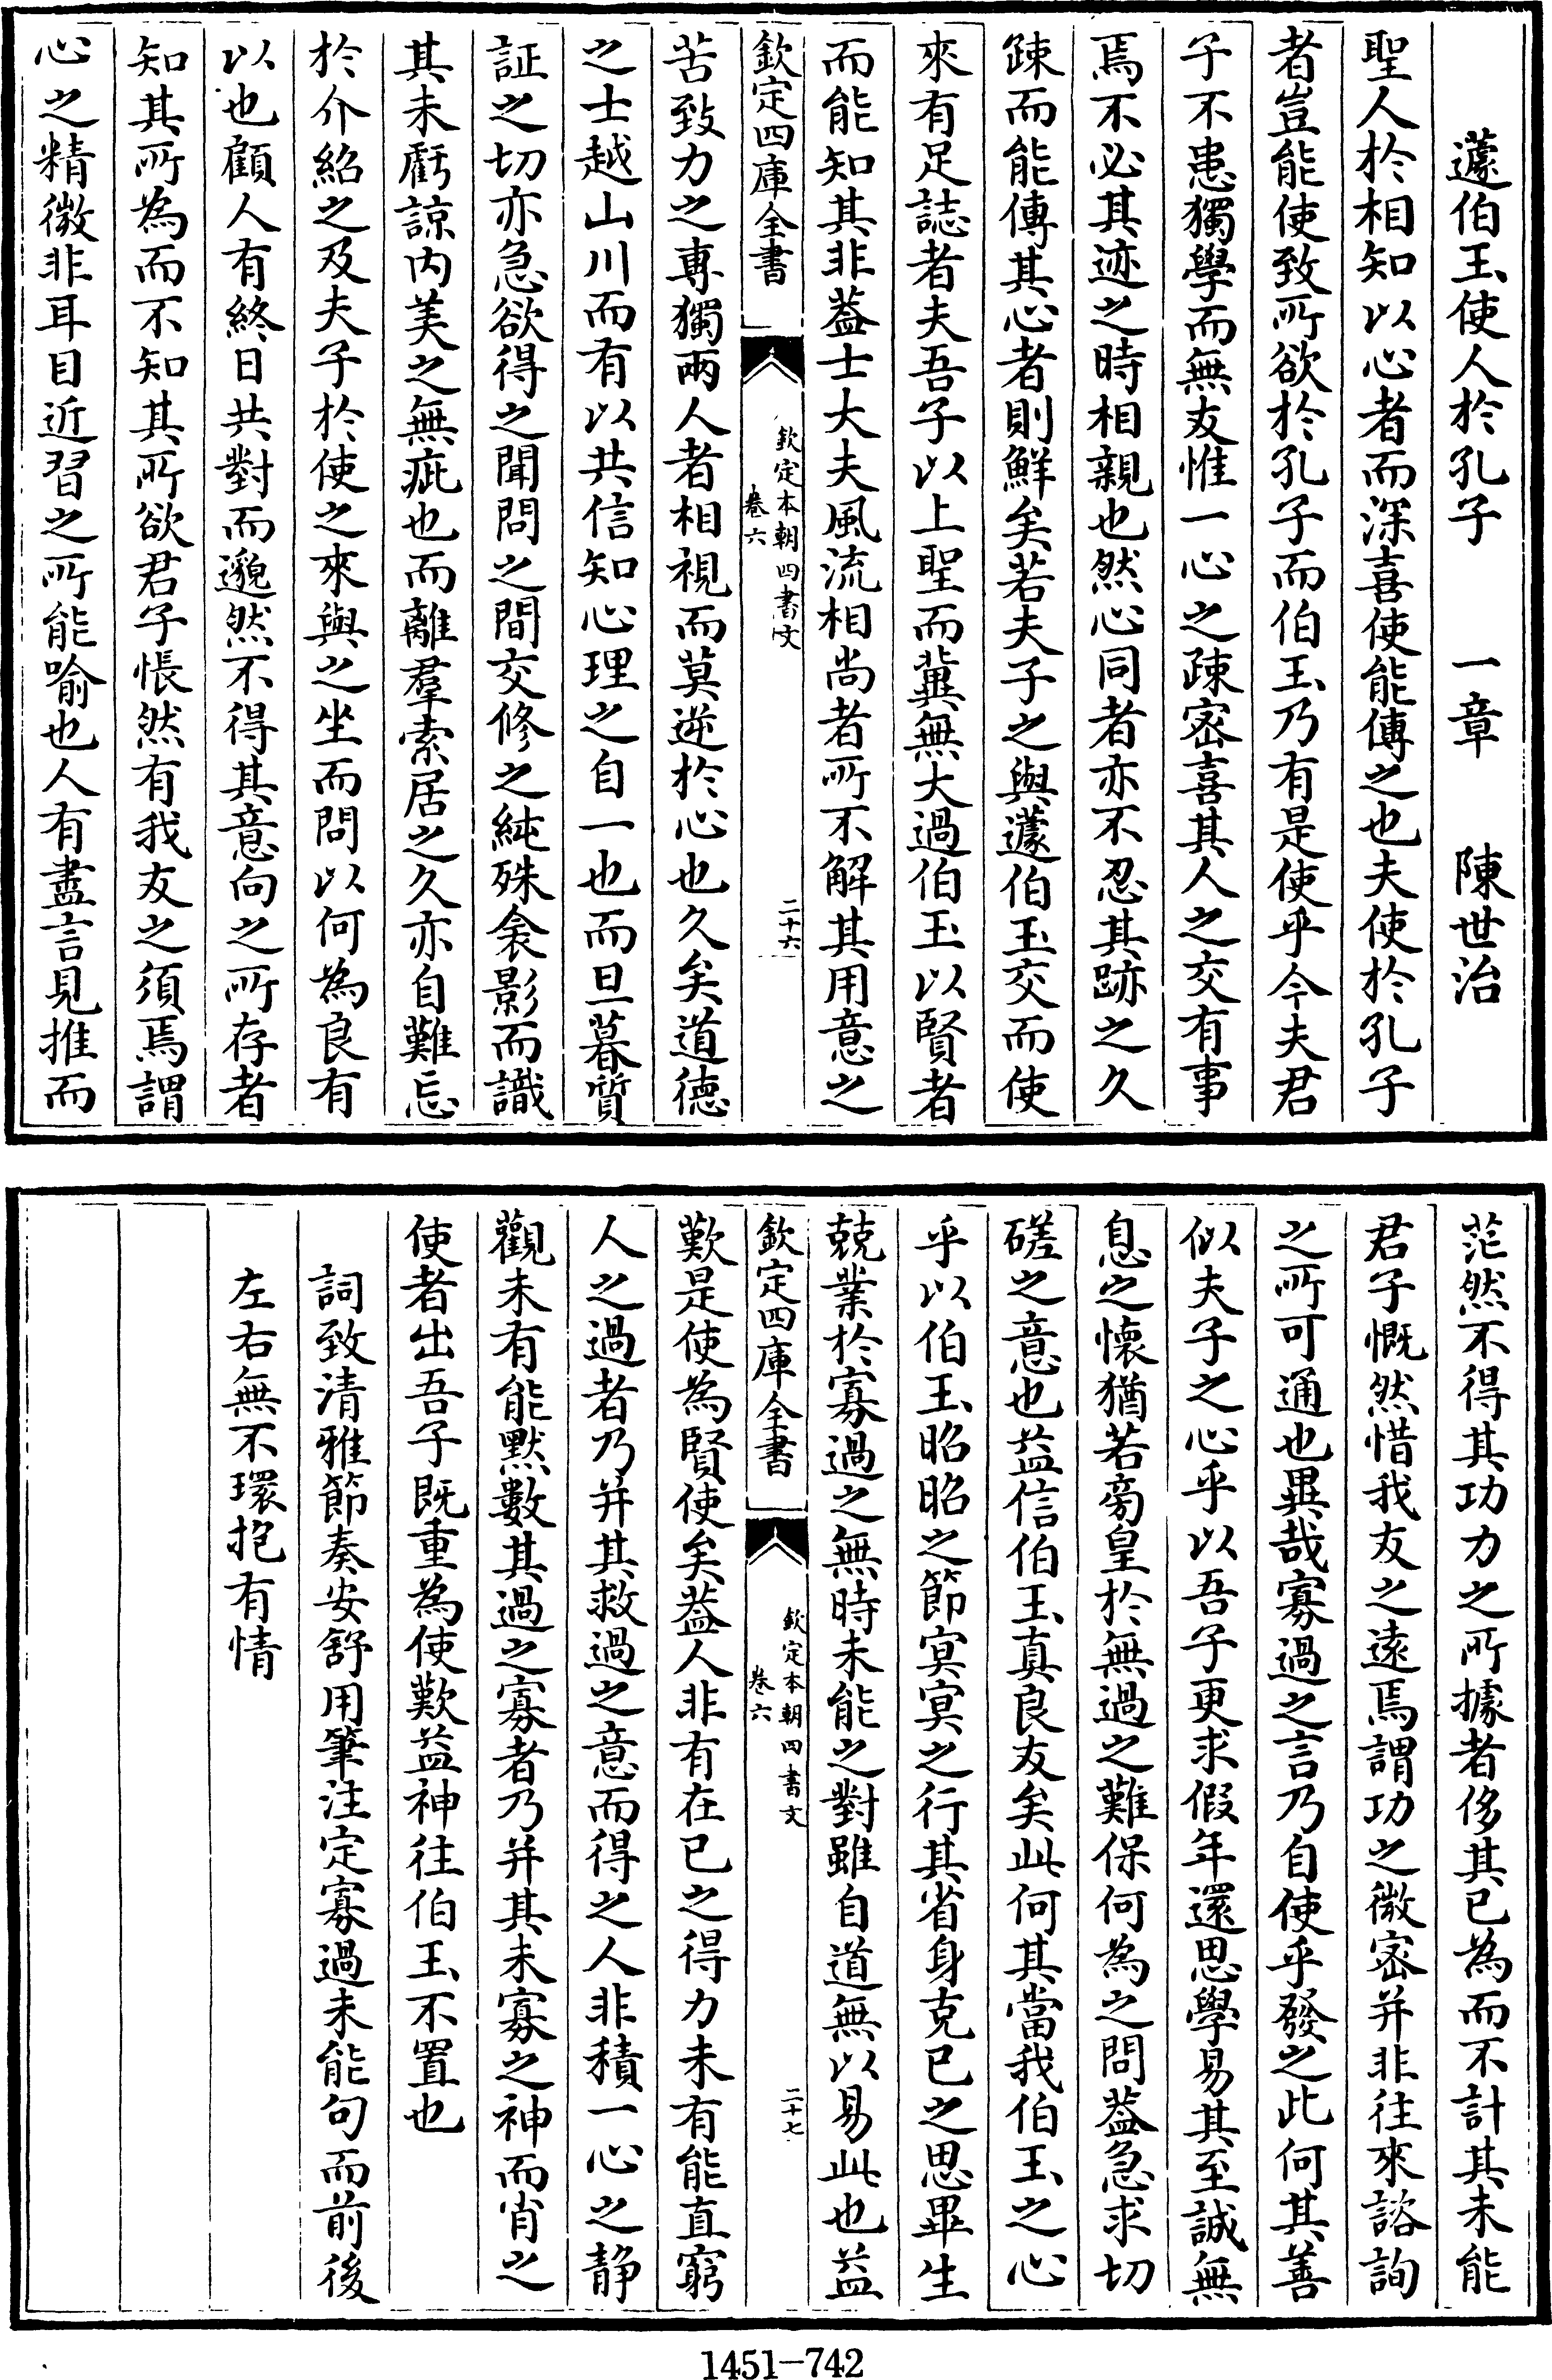 蘧伯玉使人於孔子 一章 陳世治
聖人於相知以心者而深喜使能傳之也夫使於孔子
者豈能使致所欲於孔子而伯玉乃有是使乎今夫君
子不患獨學而無友惟一心之疎密喜其人之交有事
焉不必其迹之時相親也然心同者亦不忍其跡之久
疎而能傳其心者則鮮矣若夫子之與蘧伯玉交而使
來有足誌者夫吾子以上聖而冀無大過伯玉以賢者
而能知其非葢士大夫風流相尚者所不解其用意之
欽定四庫全書
欽定本朝四書文
卷六
二十六
苦致力之專獨兩人者相視而莫逆於心也久矣道德
之士越山川而有以共信知心理之自一也而旦暮質
証之切亦急欲得之聞問之間交修之純殊衾影而識
其未虧諒内美之無疵也而離羣索居之久亦自難忘
於介紹之及夫子於使之來與之坐而問以何為良有
以也顧人有終日共對而邈然不得其意向之所存者
知其所為而不知其所欲君子悵然有我友之須焉謂
心之精微非耳目近習之所能喻也人有盡言見推而
茫然不得其功力之所據者侈其已為而不計其未能
君子慨然惜我友之遠焉謂功之微密并非往來諮詢
之所可通也異哉寡過之言乃自使乎發之此何其善
似夫子之心乎以吾子更求假年還思學易其至誠無
息之懷猶若旁皇於無過之難保何為之問葢急求切
磋之意也益信伯玉真良友矣此何其當我伯玉之心
乎以伯玉昭昭之節冥冥之行其省身克已之思畢生
兢業於寡過之無時未能之對雖自道無以易此也益
欽定四庫全書
欽定本朝四書文
卷六
二十七
歎是使為賢使矣葢人非有在已之得力未有能直窮
人之過者乃并其救過之意而得之人非積一心之靜
觀未有能默數其過之寡者乃并其未寡之神而肖之
使者出吾子既重為使歎益神往伯玉不置也
詞致清雅節奏安舒用筆注定寡過未能句而前後
左右無不環抱有情
1451-742